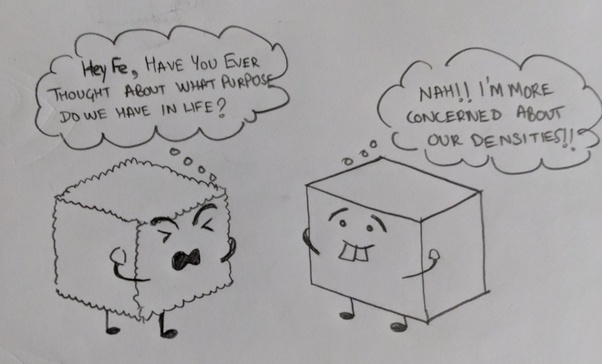 Hey Fe, HAVE YOU EVER
THOUGHT ABOUT WHAT PURPOSE
DO WE HAVE IN LIFE?
NAH!! I'M MORE
CONCERNED ABOUT
OUR DENSITIES!!